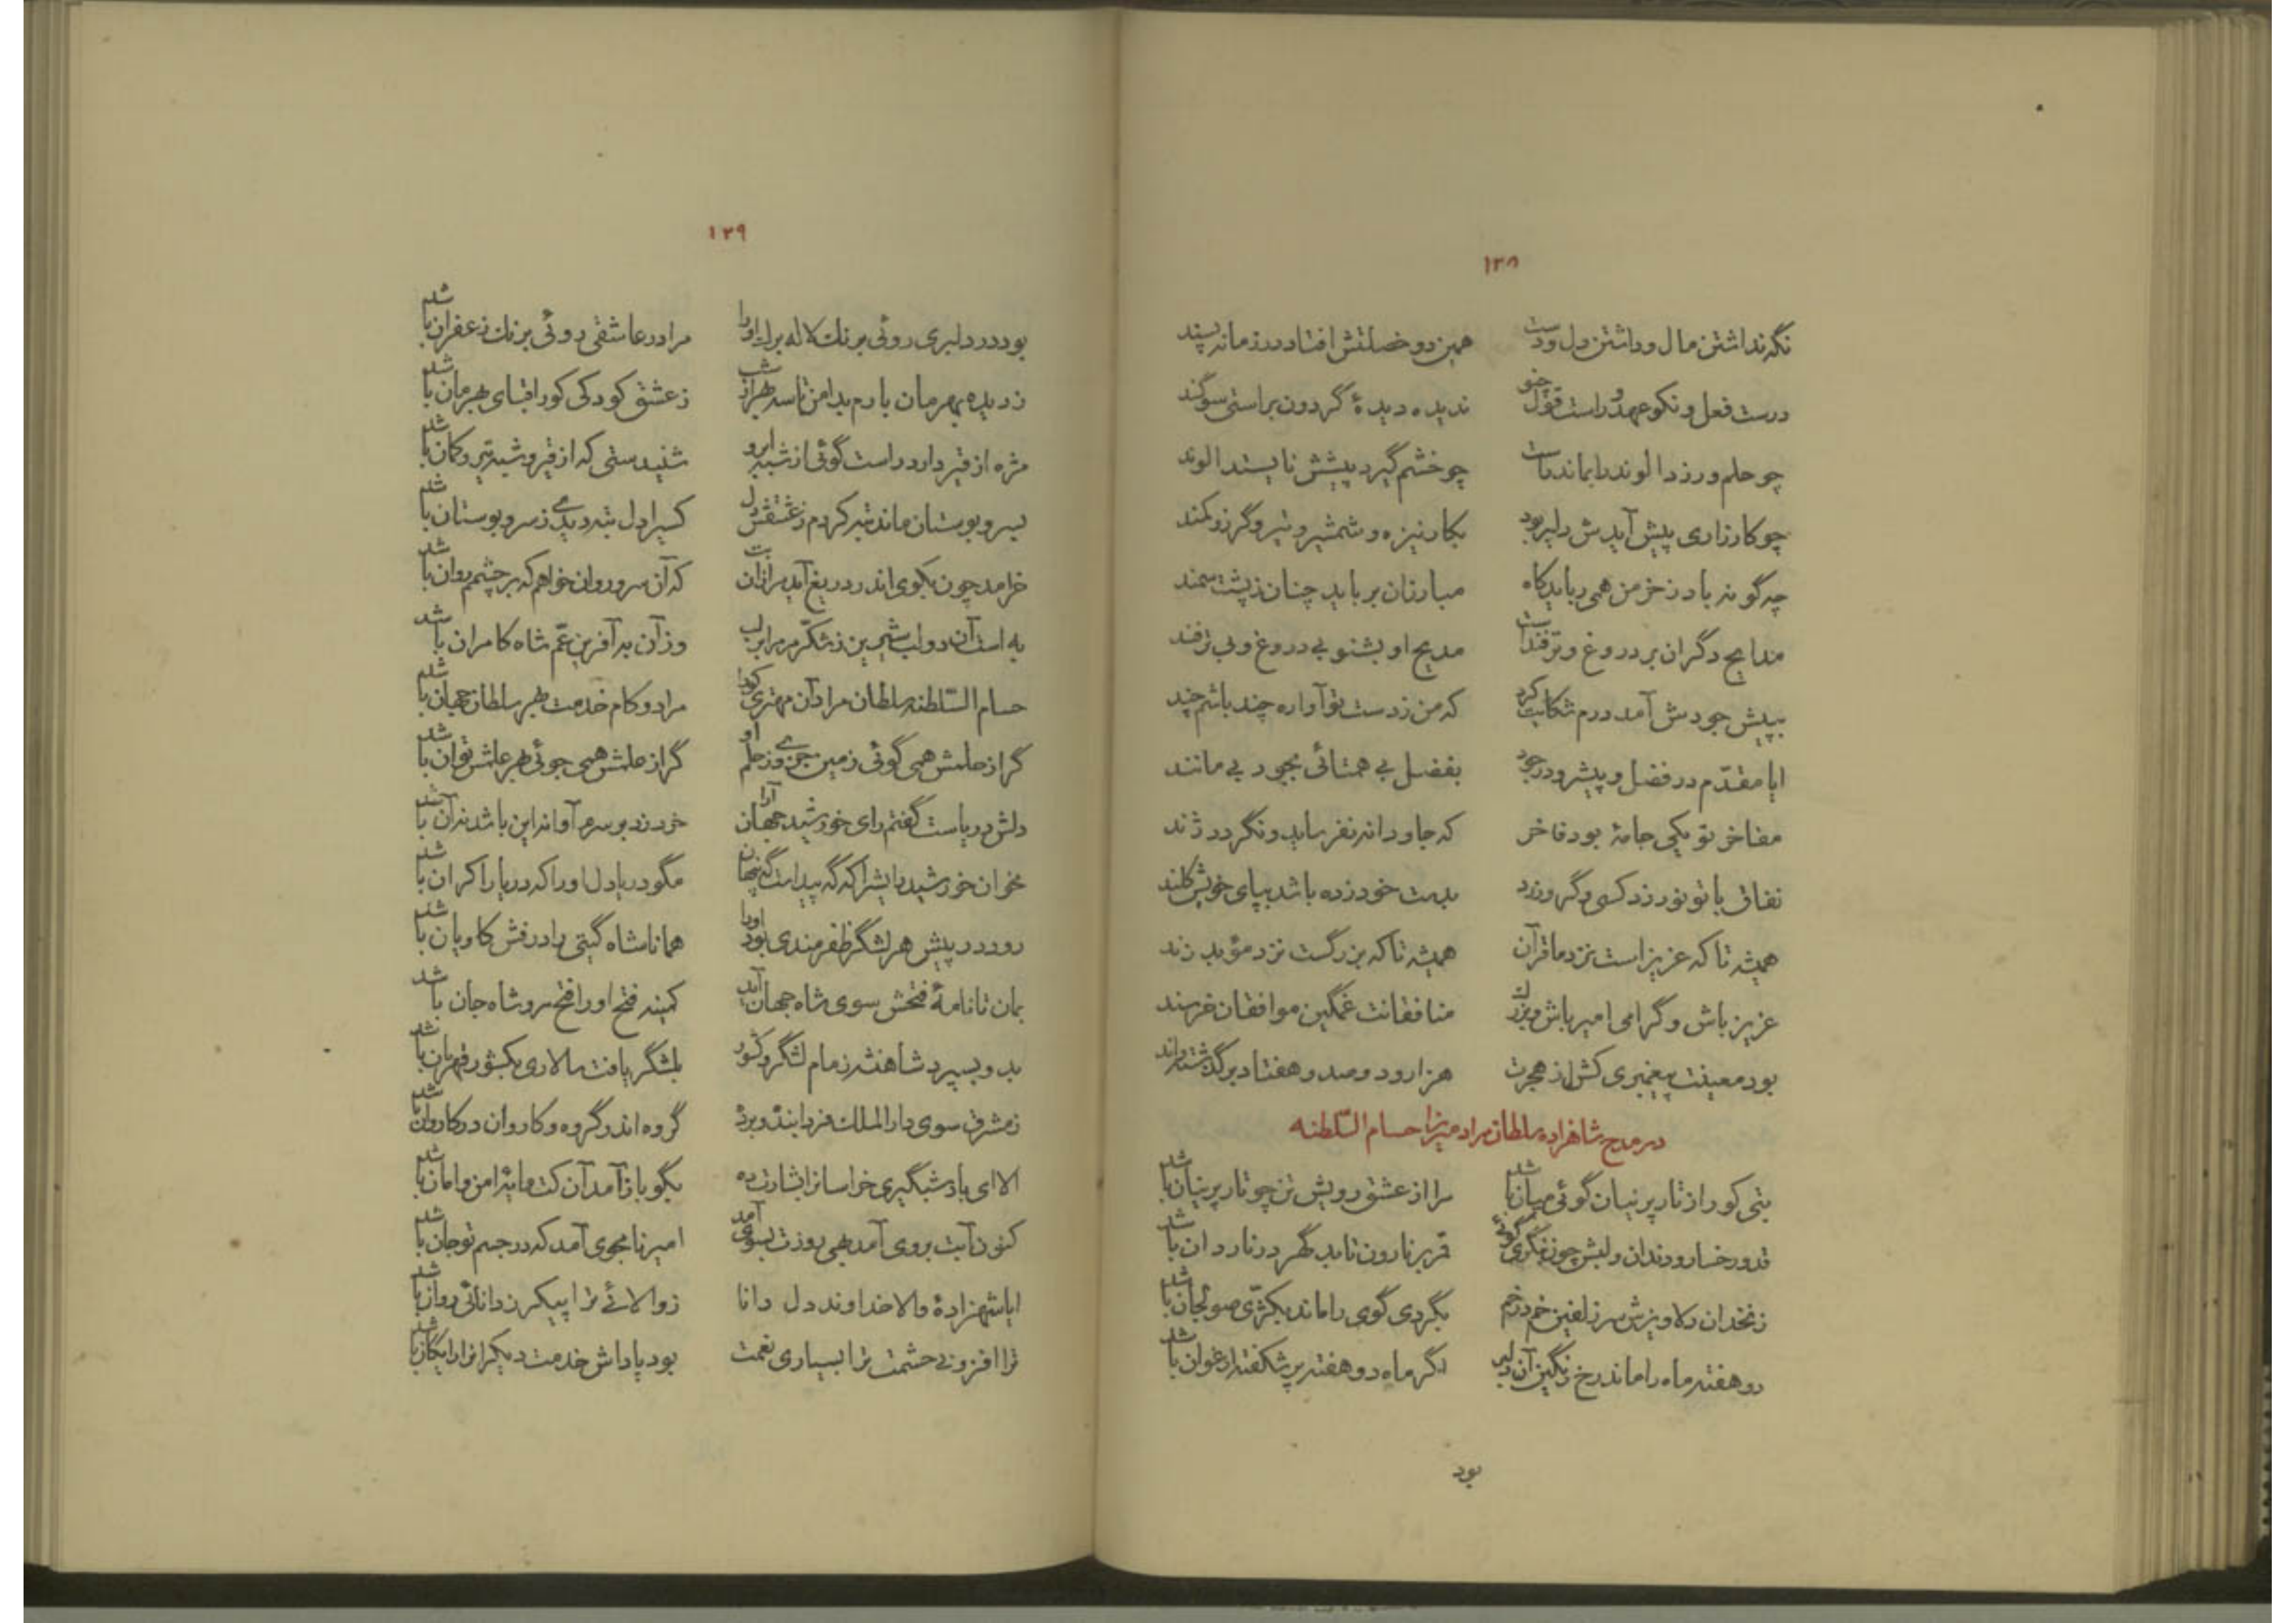 ۱۳۸
نگه نداشتن مال و داشتن دل دوست همین دو خصلتش افتاد در زمانه پسند
درست فعل و نکو عهد و راست قول و خو ندیده دیدهٔ گردون براستی سوگند
چو حلم ورزد الوند را بماند راست چو خشم گیرد پیشش نایستد الوند
چو کارزاری پیش آیدش دلیر بود بکار نیزه و شمشیر و تیر و گرز و کمند
چه گونه باد ز خرمن همی رباید کاه مبارزان برباید چنان ز پشت سمند
مدایح دگران بر دروغ و ترفند است مدیح او بشنو بی دروغ و بی ترفند
بپیش جودش آمد درم شکایت کرد که من ز دست تو آواره چند باشم چند
ایا مقدّم در فضل و پیشرو در جود بفضل بی همتائی بجود بی مانند
مفاخر تو یکی جامهٔ بود فاخر که جاودانه نفرساید و نگردد ژند
نفاق با تو نورزد کسی وگر ورزد بدست خود زده باشد بپای خویش کلند
همیشه تا که عزیز است نزد ما قرآن همیشه تا که بزرگست نزد مؤبد زند
عزیز باش و گرامی امیر باش و بزرگ منافقانت غمگین موافقان خرسند
بود معینت پیغمبری کش از هجرت هزار و دوصد و هفتاد برگذشته و اند
در مدح شاهزاده سلطان مراد میرزا حسام السّلطنه
بتی کو را ز تار پرنیان گوئی میان باشد مرا از عشق رویش تن چو تار پرنیان باشد
قد و رخسار و دندان و لبش چون بنگری گوئی قمر بر نارون تابد گهر در ناردان باشد
زنخدان دلاویزش سر زلفین خم در خم بگردی گوی را ماند بکژّی صولجان باشد
دو هفته ماه را ماند رخ رنگین آن دلبر اگر ماه دو هفته پر شکفته ارغوان باشد
بود
۱۳۹
بود در دلبری روئی برنک لاله برک او را مرا در عاشقی روئی برنک زعفران باشد
ز دیده بهرمان بارم بدامن تا سحر هر شب ز عشق کودکی کو را قبای بهرمان باشد
مژه از قیر دارد راست گوئی از شبه ابرو شنیدستی که از قیر و شبه تیر و کمان باشد
بسرو بوستان ماند تبه کردم ز عشقش دل کسیرا دل تبه دیدی ز سرو بوستان باشد
خرامد چون بکوی اندر دریغ آید مرا زان بت که آن سرو روان خواهم که بر چشمم روان باشد
به است آن دو لب شیرین ز شکّر مر مرا بر لب وز آن به آفرین عمّ شاه کامران باشد
حسام السّلطنه سلطان مراد آن مهتری کورا مراد و کام خدمت بر سلطان جهان باشد
گر از حلمش همی گوئی زمین جزوی ز حلم او گر از علمش همی جوئی بهر علمش توان باشد
دلش دریاست گفتم رای خورشید جهان آرا خرد زد بر سرم آوا نه این باشد نه آن باشد
مخوان خورشید رایشرا که گه پیداست گه پنهان مگو دریا دل او را که دریا را کران باشد
رود در پیش هر لشگر ظفرمندی بود او را همانا شاه گیتی را درفش کاویان باشد
بمان تا نامهٔ فتحش سوی شاه جهان آید کمینه فتح او را فتح مرو شاه جان باشد
بدو بسپرد شاهنشه زمام لشگر و کشور بلشگر یافت سالاری بکشور قهرمان باشد
ز مشرق سوی دار الملک فرد ابنده و برده گروه اندر گروه و کاروان در کاروان باشد
الا ای باد شبگیری خراسانرا بشارت ده بگو باز آمد آن کت مایهٔ امن و امان باشد
کنون آبت بروی آمد بهی روزت بسوی آمد امیر نامجوی آمد که در جسم تو جان باشد
ایا شهزادهٔ والا خداوند دل دانا ز والائی ترا پیکر ز دانائی روان باشد
ترا افزونی حشمت ترا بسیاری نعمت بود پاداش خدمت دیگرانرا رایگان باشد